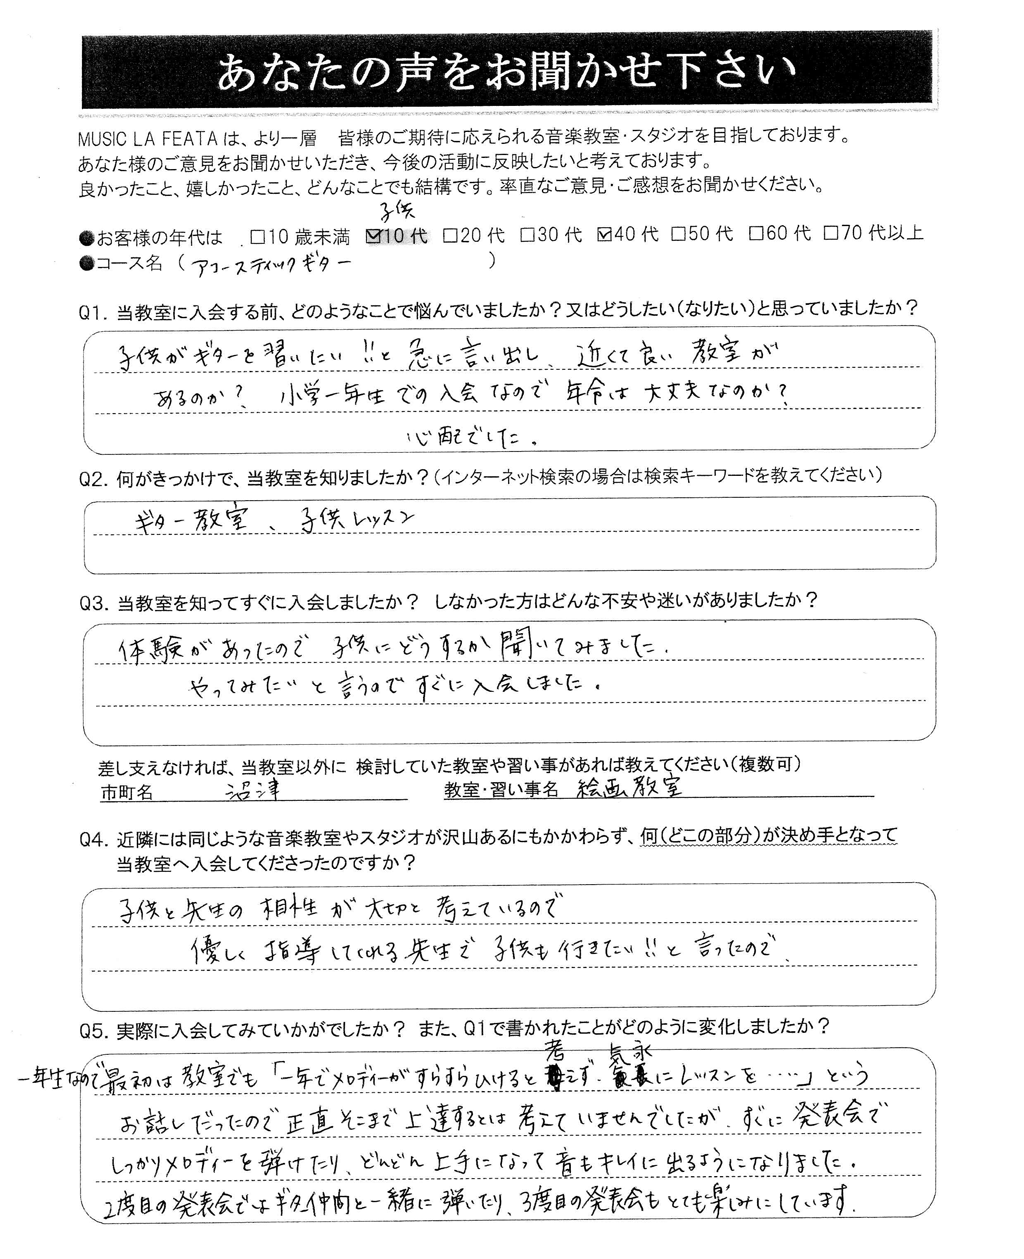 あなたの声をお聞かせ下さい
MUSIC LA FEATAは、より一層　皆様のご期待に応えられる音楽教室・スタジオを目指しております。
あなた様のご意見をお聞かせいただき、今後の活動に反映したいと考えております。
良かったこと、嬉しかったこと、どんなことでも結構です。率直なご意見・ご感想をお聞かせください。
子供
●お客様の年代は　□10歳未満　☑10代　□20代　□30代　☑40代　□50代　□60代　□70代以上
●コース名　（アコースティックギター　）
Q1. 当教室に入会する前、どのようなことで悩んでいましたか？又はどうしたい（なりたい）と思っていましたか？
子供がギターを習いたい!!と急に言い出し、近くて良い教室が
あるのか？　小学一年生での入会なので年令は大丈夫なのか？
心配でした。
Q2. 何がきっかけで、当教室を知りましたか？（インターネット検索の場合は検索キーワードを教えてください）
ギター教室、子供レッスン
Q3. 当教室を知ってすぐに入会しましたか？　しなかった方はどんな不安や迷いがありましたか？
体験があったので子供にどうするか聞いてみました。
やってみたいと言うのですぐに入会しました。
差し支えなければ、当教室以外に 検討していた教室や習い事があれば教えてください（複数可）
市町名　沼津　教室・習い事名　絵画教室
Q4. 近隣には同じような音楽教室やスタジオが沢山あるにもかかわらず、何（どこの部分）が決め手となって
当教室へ入会してくださったのですか？
子供と先生の相性が大切と考えているので
優しく指導してくれる先生で子供も行きたい!!と言ったので、
Q5. 実際に入会してみていかがでしたか？ また、Q1で書かれたことがどのように変化しましたか？
一年生なので最初は教室でも「一年でメロディーがすらすらひけると考えず、気永にレッスンを‥‥」という
お話しだったので正直そこまで上達するとは考えていませんでしたが、すぐに発表会で
しっかりメロディーを弾けたり、どんどん上手になって音もキレイに出るようになりました。
2度目の発表会ではギター仲間と一緒に弾いたり、3度目の発表会もとても楽しみにしています。